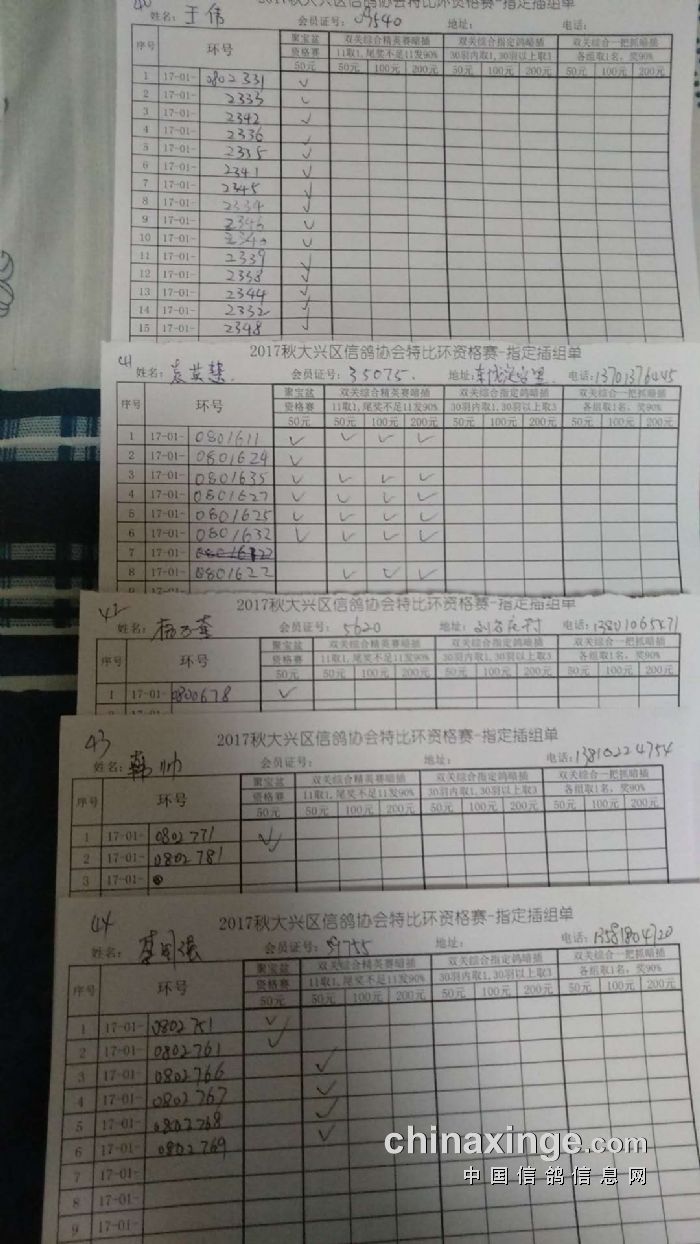 40 2017秋大兴区信鸽协会特比环资格赛-指定插组单
姓名: 于伟 会员证号: 09540 地址: 电话:
序号 环号 聚宝盆 双关综合精英赛暗插 双关综合指定鸽暗插 双关综合一把抓暗插
资格赛 11取1,尾奖不足11发90% 30羽内取1,30羽以上取3 各组取1名,奖90%
50元 50元 100元 200元 50元 100元 200元 50元 100元 200元
1 17-01- 0802331 ✓
2 17-01- 2333 ✓
3 17-01- 2342 ✓
4 17-01- 2336 ✓
5 17-01- 2335 ✓
6 17-01- 2341 ✓
7 17-01- 2345 ✓
8 17-01- 2334 ✓
9 17-01- 2346 ✓
10 17-01- 2340 ✓
11 17-01- 2339 ✓
12 17-01- 2338 ✓
13 17-01- 2344 ✓
14 17-01- 2332 ✓
15 17-01- 2348 ✓
41 2017秋大兴区信鸽协会特比环资格赛-指定插组单
姓名: 袁英慧 会员证号: 35075 地址: 电话: 13701376445
序号 环号 聚宝盆 双关综合精英赛暗插 双关综合指定鸽暗插 双关综合一把抓暗插
资格赛 11取1,尾奖不足11发90% 30羽内取1,30羽以上取3 各组取1名,奖90%
50元 50元 100元 200元 50元 100元 200元 50元 100元 200元
1 17-01- 0801611 ✓ ✓ ✓ ✓
2 17-01- 0801624 ✓
3 17-01- 0801635 ✓ ✓ ✓ ✓
4 17-01- 0801627 ✓ ✓ ✓ ✓
5 17-01- 0801625 ✓ ✓ ✓ ✓
6 17-01- 0801632 ✓ ✓ ✓ ✓
7 17-01-
8 17-01- 0801622 ✓ ✓ ✓
42 2017秋大兴区信鸽协会特比环资格赛-指定插组单
姓名: 会员证号: 5620 地址: 电话:
序号 环号 聚宝盆 双关综合精英赛暗插 双关综合指定鸽暗插 双关综合一把抓暗插
资格赛 11取1,尾奖不足11发90% 30羽内取1,30羽以上取3 各组取1名,奖90%
50元 50元 100元 200元 50元 100元 200元 50元 100元 200元
1 17-01- 0800678 ✓
43 2017秋大兴区信鸽协会特比环资格赛-指定插组单
姓名: 韩帅 会员证号: 地址: 电话: 13810224754
序号 环号 聚宝盆 双关综合精英赛暗插 双关综合指定鸽暗插 双关综合一把抓暗插
资格赛 11取1,尾奖不足11发90% 30羽内取1,30羽以上取3 各组取1名,奖90%
50元 50元 100元 200元 50元 100元 200元 50元 100元 200元
1 17-01- 0802771 ✓
2 17-01- 0802781 ✓
3 17-01-
44 2017秋大兴区信鸽协会特比环资格赛-指定插组单
姓名: 会员证号: 09755 地址: 电话: 13581804720
序号 环号 聚宝盆 双关综合精英赛暗插 双关综合指定鸽暗插 双关综合一把抓暗插
资格赛 11取1,尾奖不足11发90% 30羽内取1,30羽以上取3 各组取1名,奖90%
50元 50元 100元 200元 50元 100元 200元 50元 100元 200元
1 17-01- 0802751 ✓
2 17-01- 0802761 ✓
3 17-01- 0802766 ✓
4 17-01- 0802767 ✓
5 17-01- 0802768 ✓
6 17-01- 0802769 ✓
7 17-01-
8 17-01-
9 17-01-
chinaxinge.com
中国信鸽信息网